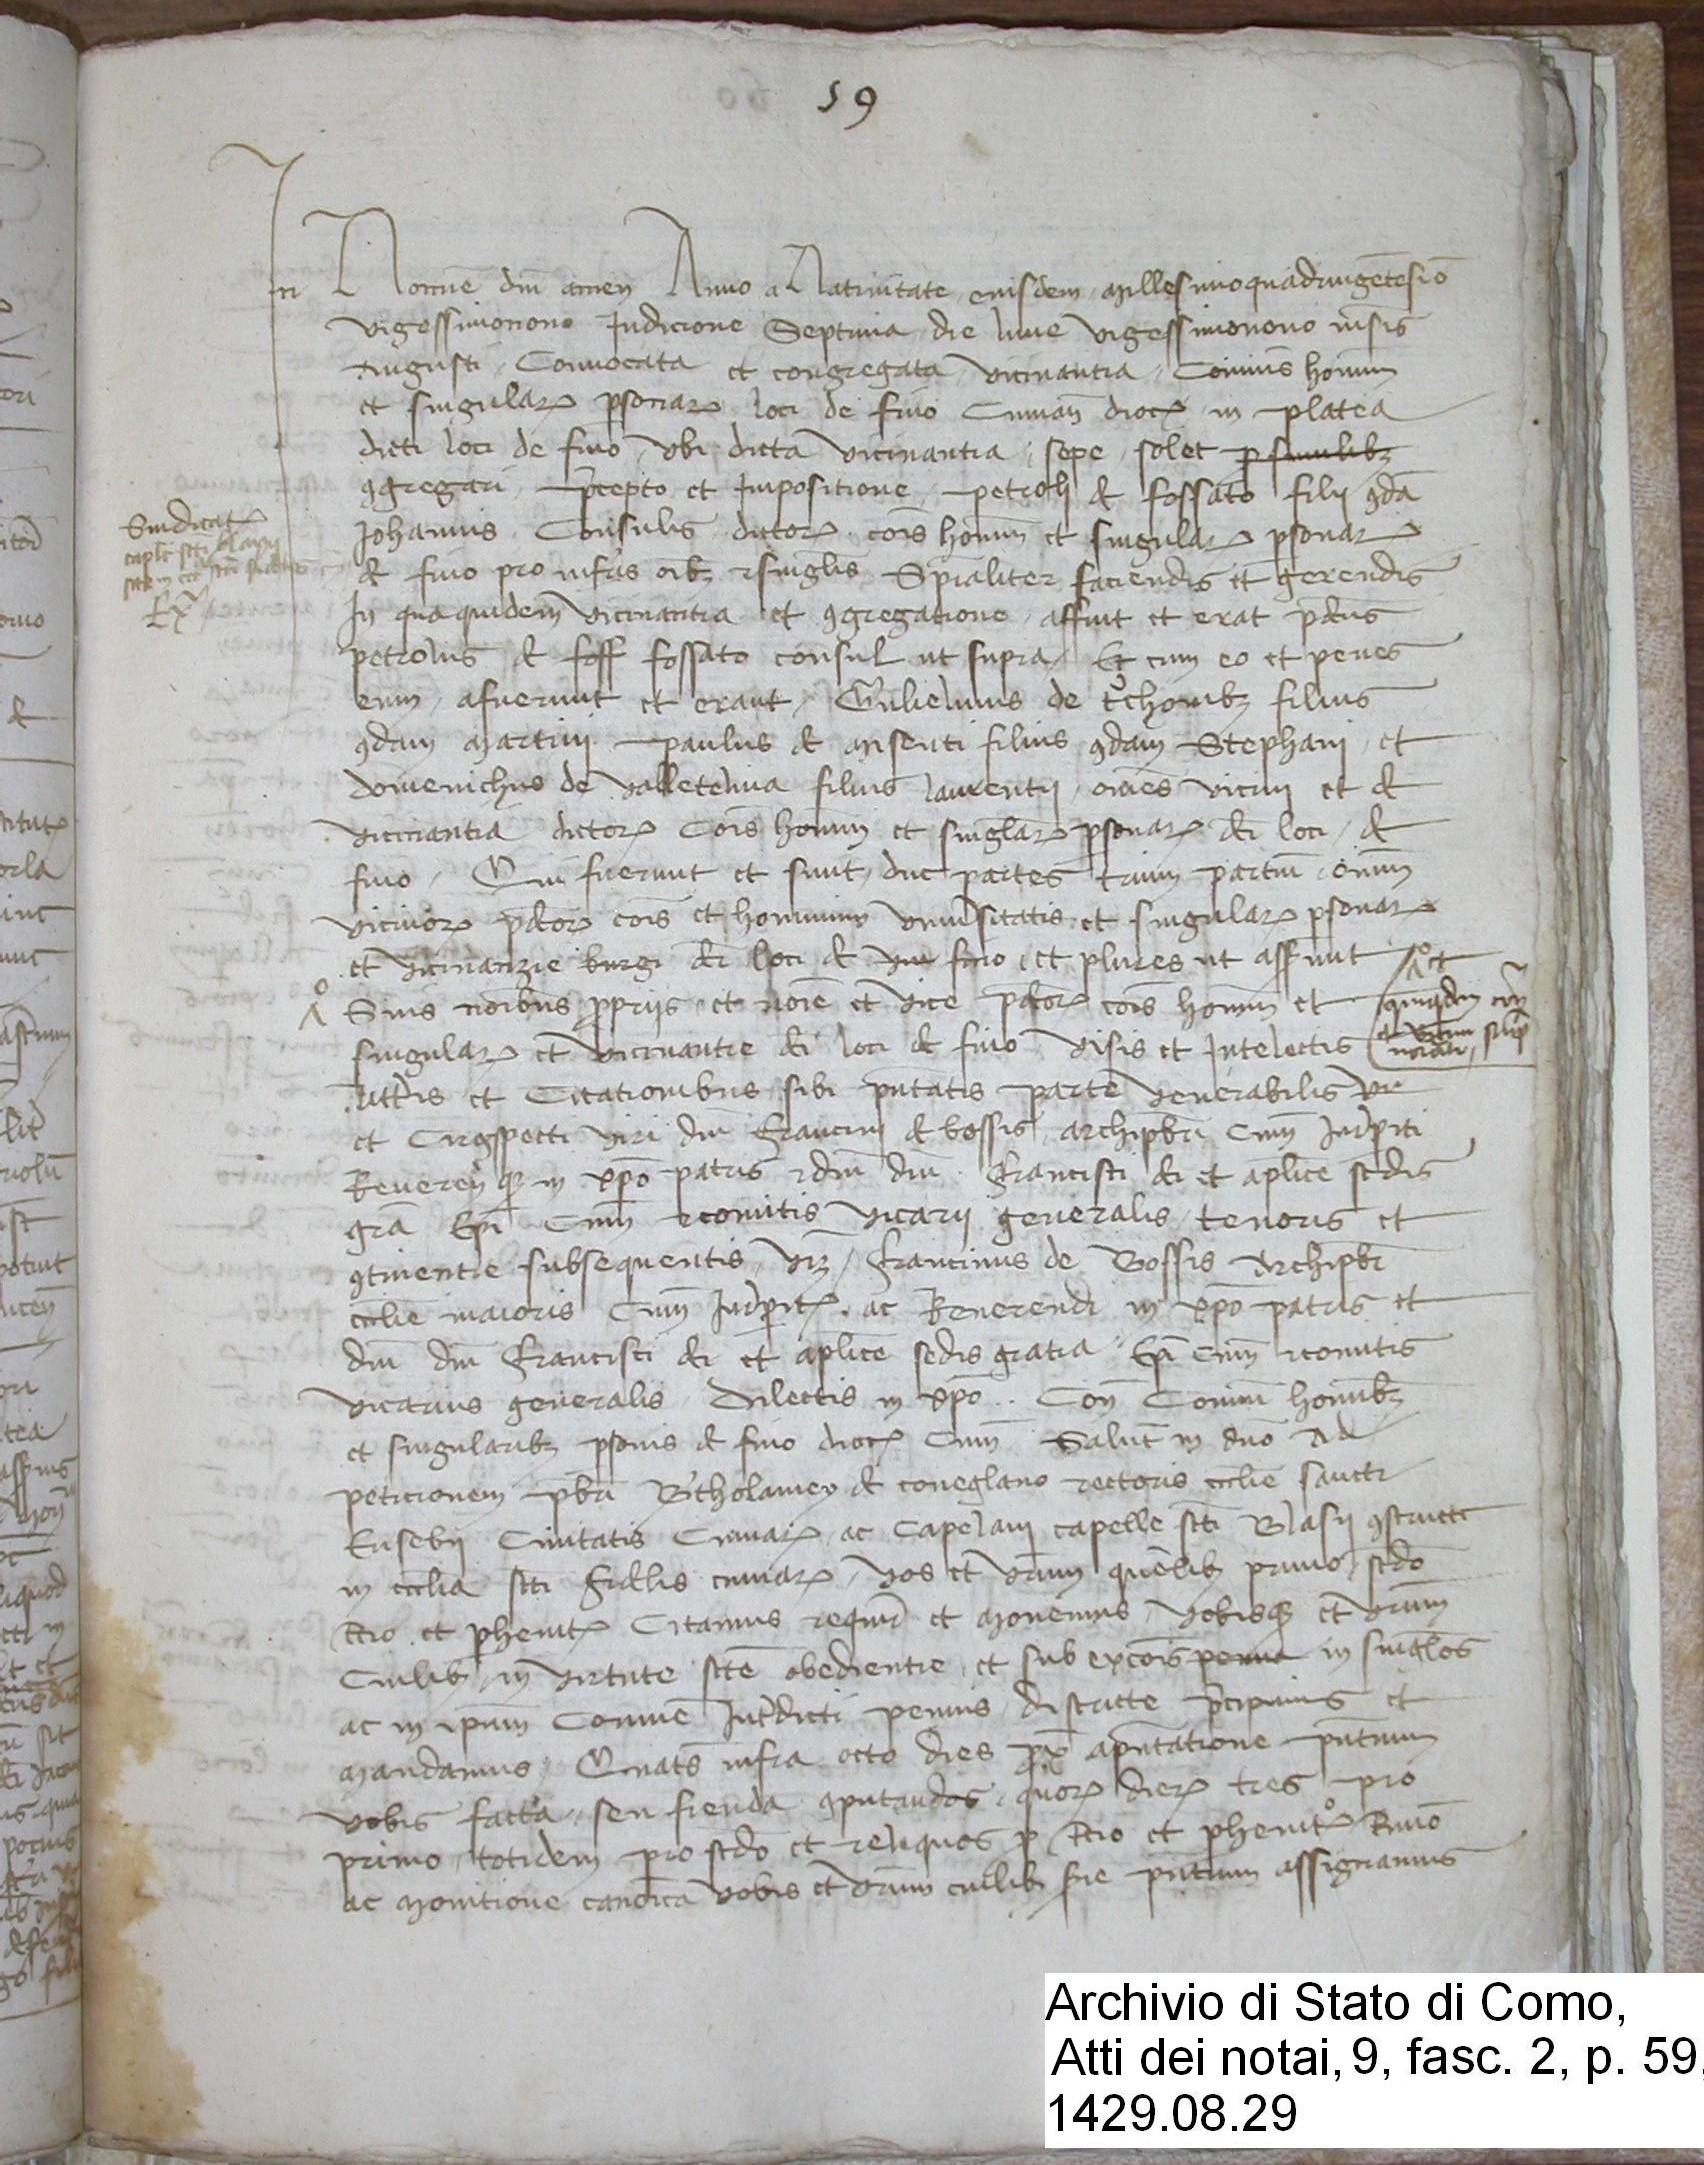 59
In Nomine dni amen Anno a Nativitate eiusdem millesimoquadringentesimo
vigessimonono Indicione Septima die lune vigessimonono mensis
augusti Convocata et congregata vicinantia Comunis hominum
et singularum personarum loci de fino Cuman dioc in platea
dicti loci de fino ubi dicta vicinantia sepe solet p similibus
congregari precepto et Impositione petroli de fossato filii condam
Johannis Consulis dictorum cois hominum et singularum personarum
de fino pro infrascriptis oibus et singulis Spialiter faciendis et gerendis
In qua quidem vicinantia et congregatione affuit et erat predictus
petrolus de foss fossato consul ut supra Et cum eo et penes
eum afuerunt et erant Gulielmus de filius
condam martini paulus de filius condam Stephani et
domenichus de valletelina filius laurentii omnes vicini et de
vicinantia dictorum Cois hominum et singularum personarum dicti loci de
fino Qui fuerunt et sunt due partes trium partium omnium
vicinorum predictorum cois et hominum universitatis et singularum personarum
et vicinanzie burgi dicti loci de fino et plures ut asserunt et
Suis nominibus propriis et nomine et vice predictorum cois hominum et
singularum et vicinantie dicti loci de fino visis et Intelectis
litteris et Citationibus sibi presentatis parte venerabilis
et Circonspecti viri dni francini de bossis archipbri Cum
in xpo patris et dni dni francisci dei et aplice sedis
gra Epi Cum et comitis vicarii generalis tenoris et
continentie subsequentis vz francinus de Bossis Archipbr
ecclie maioris Cum ac Reverendi in xpo patris et
dni dni francisci dei et aplice sedis gratia Epi cum et comitis
vicarius generalis dilectis in xpo Con Comuni hominibus
et singularibus personis de fino dioc Cum Salutem in dno Ad
peticionem pbri Btholamey de coneglano rectoris ecclie sancti
Eusebii Civitatis Cumarum ac Capelani capelle sti Blasii constructe
in ecclia sti fidelis cumarum vos et vestrum quemlibet primo secundo
tertio et pheniter Citamus requirimus et monemus vobisque et vestrum
Cuilibet in virtute sancte obedientie et sub excois pena in singulos
ac in ipsum Comune Interdicti penis districte precipimus et
mandamus Quatenus infra octo dies prox apntatione pntium
vobis facta seu fienda conputandos quorum dierum tres pro
primo totidem pro secundo et reliquos pro tertio et phenitorio termino
ac monitione canonica vobis et vestrum cuilibet presentium assignamus
Sindicat
Archivio di Stato di Como,
Atti dei notai, 9, fasc. 2, p. 59,
1429.08.29